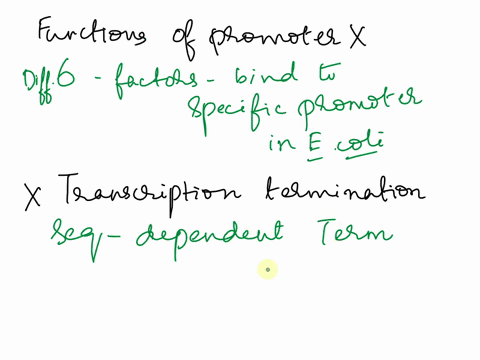 Functions of promoter X
Diff. 6 - factors - bind to
specific promoter
in E coli
X Transcription termination
Seq - dependent Term